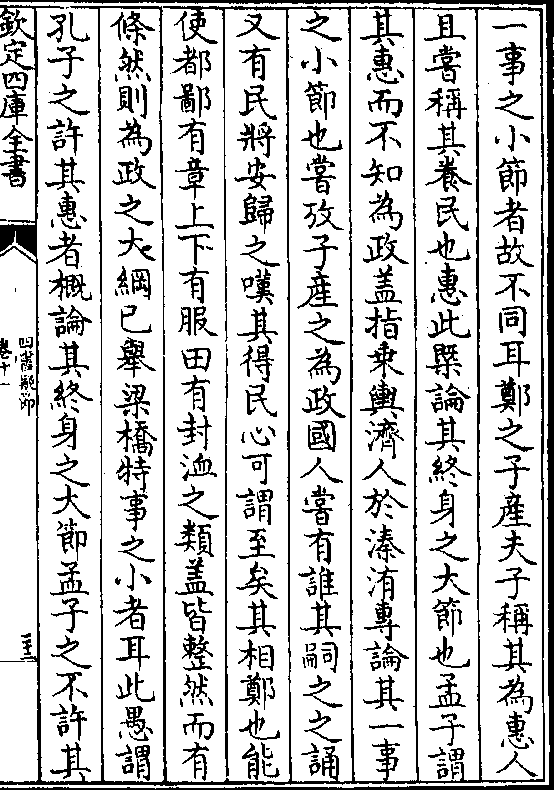 一事之小節者故不同耳鄭之子產夫子稱其為惠人
且嘗稱其養民也惠此槩論其終身之大節也孟子謂
其惠而不知為政盖指乗輿濟人於溱洧專論其一事
之小節也嘗攷子產之為政國人嘗有誰其嗣之之誦
又有民將安歸之嘆其得民心可謂至矣其相鄭也能
使都鄙有章上下有服田有封洫之類盖皆整然而有
條然則為政之大綱已舉梁橋特事之小者耳此愚謂
孔子之許其惠者概論其終身之大節孟子之不許其
欽定四庫全書
卷十一